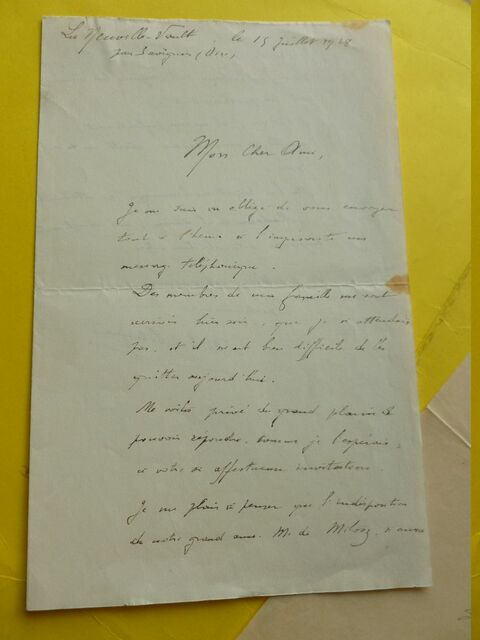 La Neuville-Vault le 15 juillet 1928
par Savignies (Oise)
Mon cher Ami,
Je me suis vu obligé de vous envoyer
tout à l'heure à l'improviste un
message téléphonique.
Des membres de ma famille me sont
arrivés hier soir, que je n'attendais
pas, et il m'est bien difficile de les
quitter aujourd'hui.
Me voilà privé du grand plaisir de
pouvoir répondre, comme je l'espérais,
à votre si affectueuse invitation.
Je me plais à penser que l'indisposition
de notre grand ami, M. de Milosz, n'aura